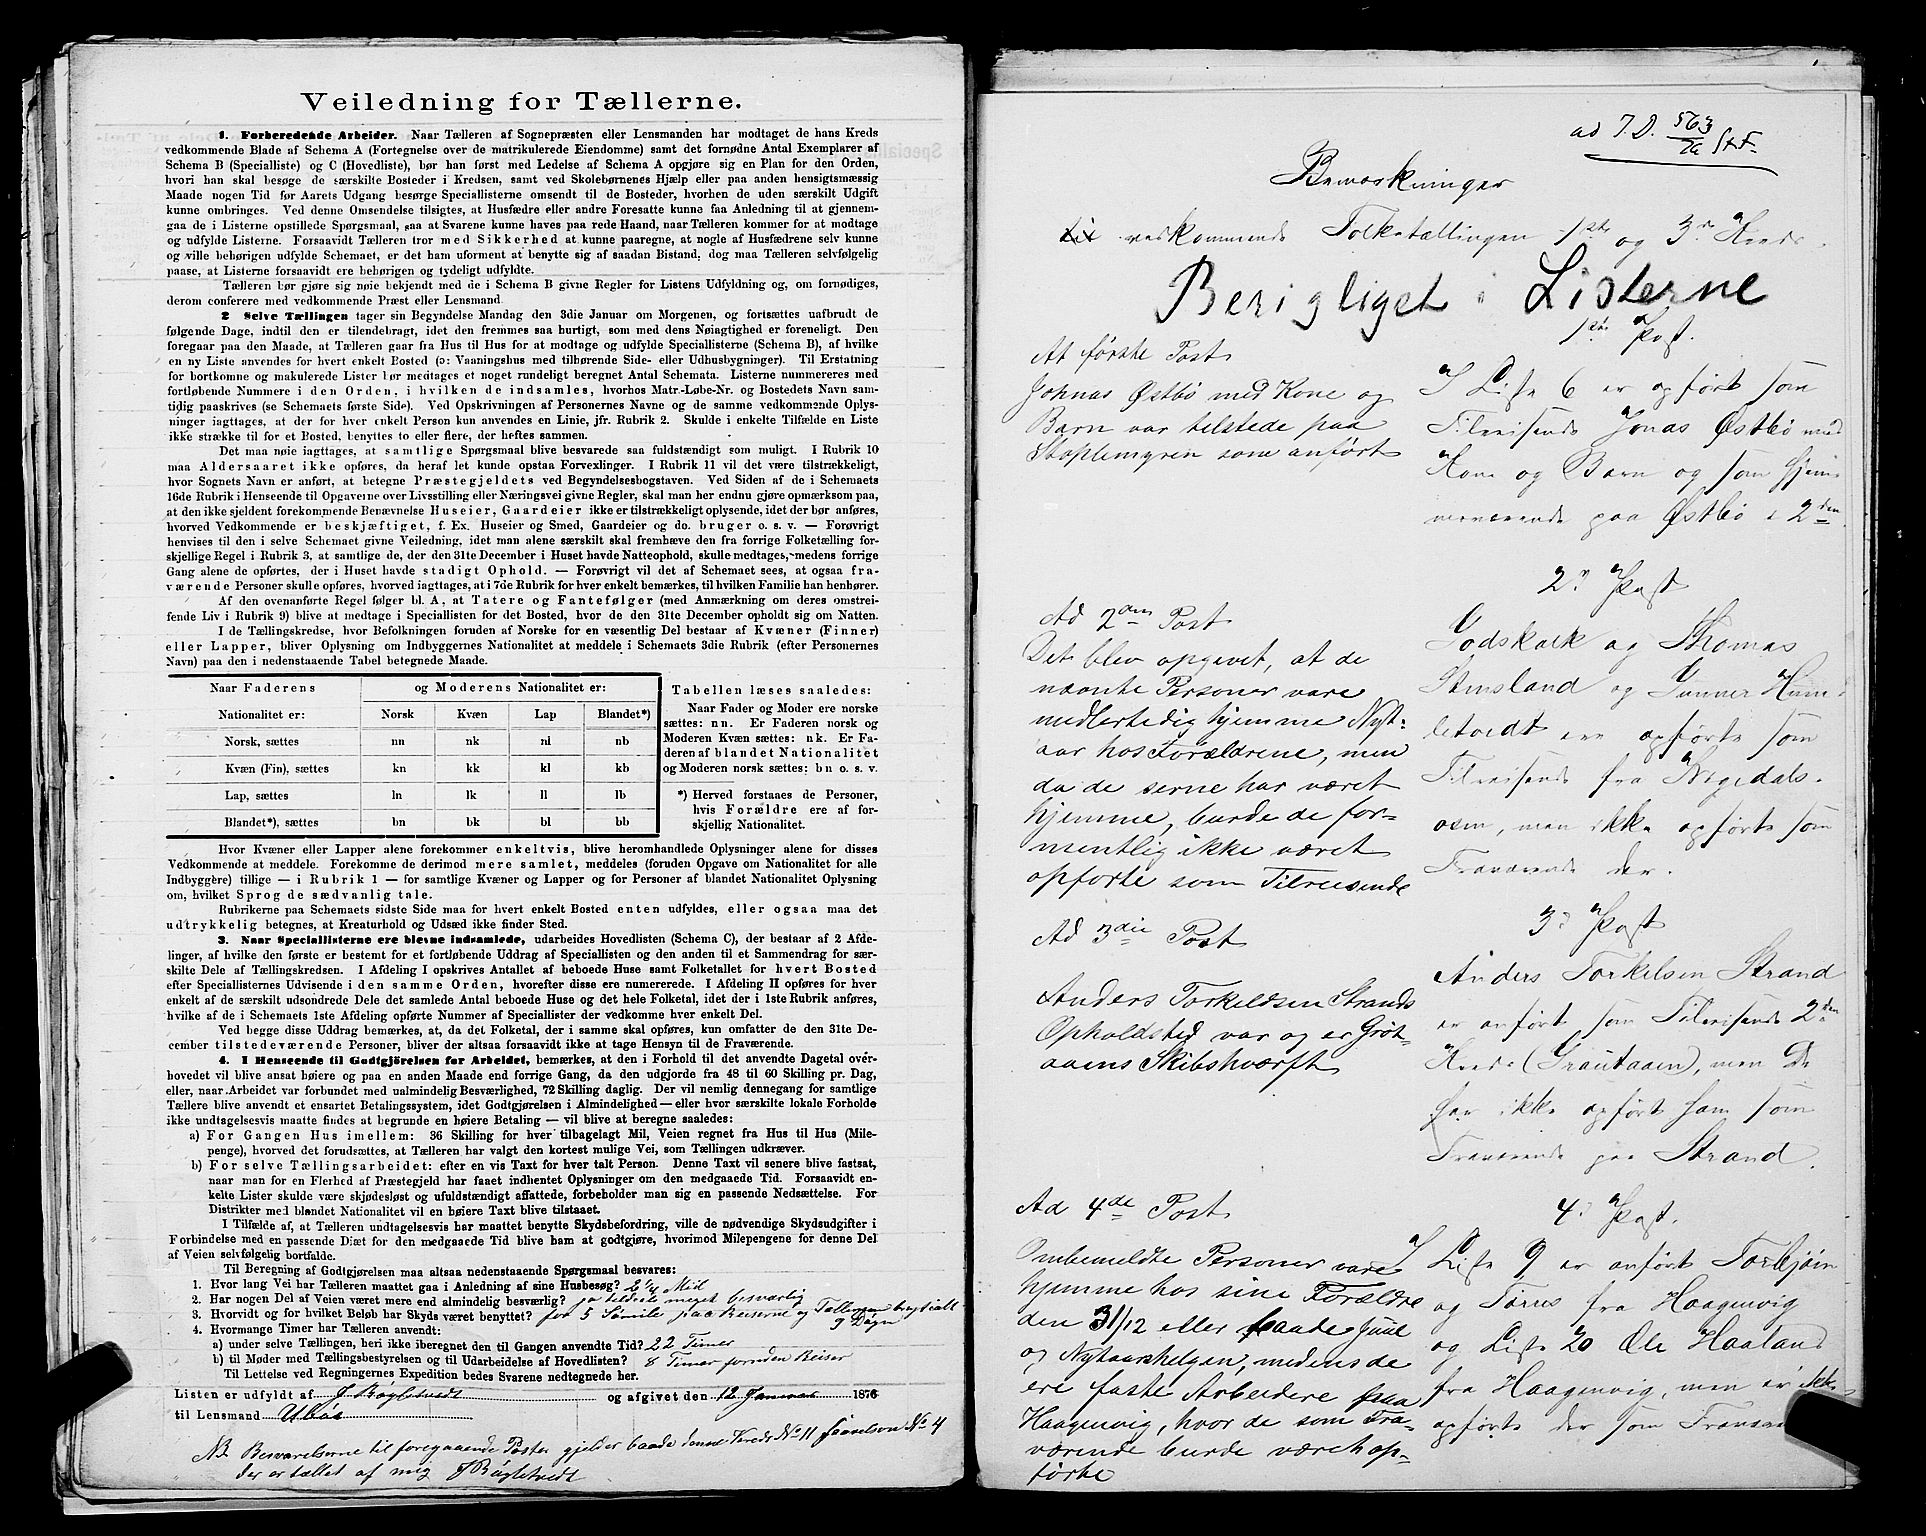 Veiledning for Tællerne.
1. Forberedende Arbeider. Naar Tælleren af Sognepræsten eller Lensmanden har modtaget de hans Kreds
vedkommende Blade af Schema A (Fortegnelse over de matrikulerede Eiendomme) samt det fornødne Antal Exemplarer af
Schema B (Specialliste) og C (Hovedliste), bør han først med Ledelse af Schema A opgjøre sig en Plan for den Orden,
hvori han skal besøge de særskilte Bosteder i Kredsen, samt ved Skolebørnenes Hjælp eller paa anden hensigtsmæssig
Maade nogen Tid før Aarets Udgang besørge Speciallisterne omsendt til de Bosteder, hvorhen de uden særskilt Udgift
kunne ombringes. Ved denne Omsendelse tilsigtes, at Husfædre eller andre Foresatte kunne faa Anledning til at gjennem-
gaa de i Listerne opstillede Spørgsmaal, saa at Svarene kunne haves paa rede Haand, naar Tælleren kommer for at modtage
og udfylde Listerne. Forsaavidt Tælleren tror med Sikkerhed at kunne paaregne, at nogle af Husfædrene selv kunne
og ville behørigen udfylde Schemaet, er det ham uforment at benytte sig af saadan Bistand, dog maa Tælleren selvfølgelig
paase, at Listerne forsaavidt ere behørigen og tydeligt udfyldte.
Tælleren bør gjøre sig nøie bekjendt med de i Schema B givne Regler for Listens Udfyldning og, om fornødiges,
derom conferere med vedkommende Præst eller Lensmand.
2 Selve Tællingen tager sin Begyndelse Mandag den 3die Januar om Morgenen, og fortsættes uafbrudt de
følgende Dage, indtil den er tilendebragt, idet den fremmes saa hurtigt, som med dens Nøiagtighed er foreneligt. Den
foregaar paa den Maade, at Tælleren gaar fra Hus til Hus for at modtage og udfylde Speciallisterne (Schema B), af hvilke
en ny Liste anvendes for hvert enkelt Bosted (ɔ: Vaaningshus med tilhørende Side- eller Udhusbygninger). Til Erstatning
for bortkomne og makulerede Lister bør medtages et noget rundeligt beregnet Antal Schemata. Listerne nummereres med
fortløbende Nummere i den Orden, i hvilken de indsamles, hvorhos Matr.-Løbe-Nr. og Bostedets Navn sam-
tidig paaskrives (se Schemaets første Side). Ved Opskrivningen af Personernes Navne og de samme vedkommende Oplys-
ninger iagttages, at der for hver enkelt Person kun anvendes en Linie, jfr. Rubrik 2. Skulde i enkelte Tilfælde en Liste
ikke strække til for et Bosted, benyttes to eller flere, der heftes sammen.
Det maa nøie iagttages, at samtlige Spørgsmaal blive besvarede saa fuldstændigt som muligt. I Rubrik 10
maa Aldersaaret ikke opføres, da heraf let kunde opstaa Forvexlinger. I Rubrik 11 vil det være tilstrækkeligt,
hvor Sognets Navn er anført, at betegne Præstegjeldets ved Begyndelsesbogstaven. Ved Siden af de i Schemaets
16de Rubrik i Henseende til Opgaverne over Livsstilling eller Næringsvei givne Regler, skal man her endnu gjøre opmærksom paa,
at den ikke sjeldent forekommende Benævnelse Huseier, Gaardeier ikke er tilstrækkeligt oplysende, idet der bør anføres,
hvorved Vedkommende er beskjæftiget, f. Ex. Huseier og Smed, Gaardeier og do. bruger o. s. v. — Forøvrigt
henvises til den i selve Schemaet givne Veiledning, idet man alene særskilt skal fremhæve den fra forrige Folketælling for-
skjellige Regel i Rubrik 3, at samtlige de, der den 31te December i Huset havde Natteophold, skulle medtages, medens forrige
Gang alene de opførtes, der i Huset havde stadigt Ophold. — Forøvrigt vil det af Schemaet sees, at ogsaa fra-
værende Personer skulle opføres, hvorved iagttages, at i 7de Rubrik for hver enkelt bemærkes, til hvilken Familie han henhører.
Af den ovenanførte Regel følger bl. A, at Tatere og Fantefølger (med Anmærkning om deres omstrei-
fende Liv i Rubrik 9) blive at medtage i Speciallisten for det Bosted, hvor de den 31te December opholdt sig om Natten.
I de Tællingskredse, hvor Befolkningen foruden af Norske for en væsentlig Del bestaar af Kvæner (Finner)
eller Lapper, bliver Oplysning om Indbyggernes Nationalitet at meddele i Schemaets 3die Rubrik (efter Personernes
Navn) paa den i nedenstaaende Tabel betegnede Maade.
Naar Faderens og Moderens Nationalitet er:
Nationalitet er: Norsk Kvæn Lap Blandet*)
Norsk, sættes nn nk nl nb
Kvæn (Fin), sættes kn kk kl kb
Lap, sættes ln lk ll lb
Blandet*), sættes bn bk bl bb
Tabellen læses saaledes:
Naar Fader og Moder ere norske
sættes: nn. Er Faderen norsk og
Moderen Kvæn sættes: nk. Er Fa-
deren af blandet Nationalitet
og Moderen norsk sættes: bn o. s. v.
*) Herved forstaaes de Personer,
hvis Forældre ere af for-
skjellig Nationalitet.
Hvor Kvæner eller Lapper alene forekommer enkeltvis, blive heromhandlede Oplysninger alene for disses
Vedkommende at meddele. Forekomme de derimod mere samlet, meddeles (foruden Opgave om Nationalitet for alle
Indbyggere) tillige — i Rubrik 1 — for samtlige Kvæner og Lapper og for Personer af blandet Nationalitet Oplysning
om, hvilket Sprog de sædvanlig tale.
Rubrikerne paa Schemaets sidste Side maa for hvert enkelt Bosted enten udfyldes, eller ogsaa maa det
udtrykkelig betegnes, at Kreaturhold og Udsæd ikke finder Sted.
3. Naar Speciallisterne ere blevne indsamlede, udarbeides Hovedlisten (Schema C), der bestaar af 2 Afde-
linger, af hvilke den første er bestemt for et fortløbende Uddrag af Speciallisten og den anden til et Sammendrag for sær-
skilte Dele af Tællingskredsen. I Afdeling I opskrives Antallet af beboede Huse samt Folketallet for hvert Bosted
efter Speciallisternes Udvisende i den samme Orden, hvorefter disse ere numererede. I Afdeling II opføres for hver
enkelt af de særskilt udsondrede Dele det samlede Antal beboede Huse og det hele Folketal, idet der i 1ste Rubrik anføres,
hvilke af de i Schemaets 1ste Afdeling opførte Nummer af Speciallister der vedkomme hver enkelt Del.
Ved begge disse Uddrag bemærkes, at, da det Folketal, der i samme skal opføres, kun omfatter de den 31te De-
cember tilstedeværende Personer, bliver der altsaa forsaavidt ikke at tage Hensyn til de Fraværende.
4. I Henseende til Godtgjørelsen for Arbeidet, bemærkes, at den i Forhold til det anvendte Dagetal over-
hovedet vil blive ansat høiere og paa en anden Maade end forrige Gang, da den udgjorde fra 48 til 60 Skilling pr. Dag,
eller, naar Arbeidet var forbundet med ualmindelig Besværlighed, 72 Skilling daglig. Der vil nemlig dennegang for samtlige
Tællere blive anvendt et ensartet Betalingssystem, idet Godtgjørelsen i Almindelighed — eller hvor særskilte lokale Forholde
ikke undtagelsesvis maatte findes at begrunde en høiere Betaling — vil blive at beregne saaledes:
a) For Gangen Hus imellem: 36 Skilling for hver tilbagelagt Mil, Veien regnet fra Hus til Hus (Mile-
penge), hvorved det forudsættes, at Tælleren har valgt den kortest mulige Vei, som Tællingen udkræver.
b) For selve Tællingsarbeidet: efter en vis Taxt for hver talt Person. Denne Taxt vil senere blive fastsat,
naar man for en Flerhed af Præstegjeld har faaet indhentet Oplysninger om den medgaaede Tid. Forsaavidt en-
kelte Lister skulde være skjødesløst og ufuldstændigt affattede, forbeholder man sig en passende Nedsættelse. For
Distrikter med blandet Nationalitet vil en høiere Taxt blive tilstaaet.
I Tilfælde af, at Tælleren undtagelsesvis har maattet benytte Skydsbefordring, ville de nødvendige Skydsudgifter i
Forbindelse med en passende Diæt for den medgaaede Tid blive ham at godtgjøre, hvorimod Milepengene for denne Del
af Veien selvfølgelig bortfalde.
Til Beregning af Godtgjørelsen maa altsaa nedenstaaende Spørgsmaal besvares:
1. Hvor lang Vei har Tælleren maattet gaa i Anledning af sine Husbesøg? 2 1/4 Mil
2. Har nogen Del af Veien været mere end almindelig besværlig? ja tildels meget besværlig
3. Hvorvidt og for hvilket Beløb har Skyds været benyttet? for 5 Sømile paa Reiserne og Tællingen
9 Døgn
4. Hvormange Timer har Tælleren anvendt:
a) under selve Tællingen, heri ikke iberegnet den til Gangen anvendte Tid? 22 Timer
b) til Møder med Tællingsbestyrelsen og til Udarbeidelse af Hovedlisten? 8 Timer foruden Reiser
Til Lettelse ved Regningernes Expedition bedes Svarene nedtegnede her.
Listen er udfyldt af J Bögletvedt og afgivet den 12 Januar 1876
til Lensmand Ubøe
NB. Besvarelserne til foregaaende Poster gjelder baade denne Kreds No 11 No 4
der er tællet af mig J Bögletvedt
ad J.D. 563/76 StF.
Bemærkninger
vedkommende Folketællingen 1ste og 3die Kreds.
Berigtiget i Listerne
1ste Post.
At første Post
Johnas Østbö med Kone og
Barn var tilstede paa
Stoplemyren som anført
I Liste 6 er opført som
Tilreisende Jonas Østbö med
Kone og Barn og som hjem-
værende paa Østbö i 2den
2n Post
Ad 2den Post
Det blev opgivet, at de
nævnte Personer vare
midlertidig hjemme Nyt-
aar hos Forældrene, men
da de senre har været
hjemme, burde de for-
mentlig ikke været
opførte som Tilreisende
Godskalk og Thomas
Stensland og Gunner Hum-
letvedt ere opførte som
Tilreisende fra
osen, men ikke opførte som
Fraværende der.
3d Post
Ad 3die Post
Anders Torkildsen Strands
Opholdsted var og er Grøt-
aaens Skibsværft
Anders Torkelsen Strand
er anført som Tilreisende 2den
Kreds (Grautaaen), men De
har ikke opført ham som
Fraværende paa Strand.
4d Post.
Ad 4de Post
Ombemeldte Personer vare
hjemme hos sine Forældre
den 31/12 eller baade Juul
og Nytaarshelgen, medens de
ere faste Arbeidere paa
Haagenvig, hvor de som Fra-
værende burde været op-
førte
I Liste 9 er anført Torbjön
og Tørres fra Haagenvig
og Liste 20 Ole Haaland
fra Haagenvig, men er ikke
opførte der som Fravæ